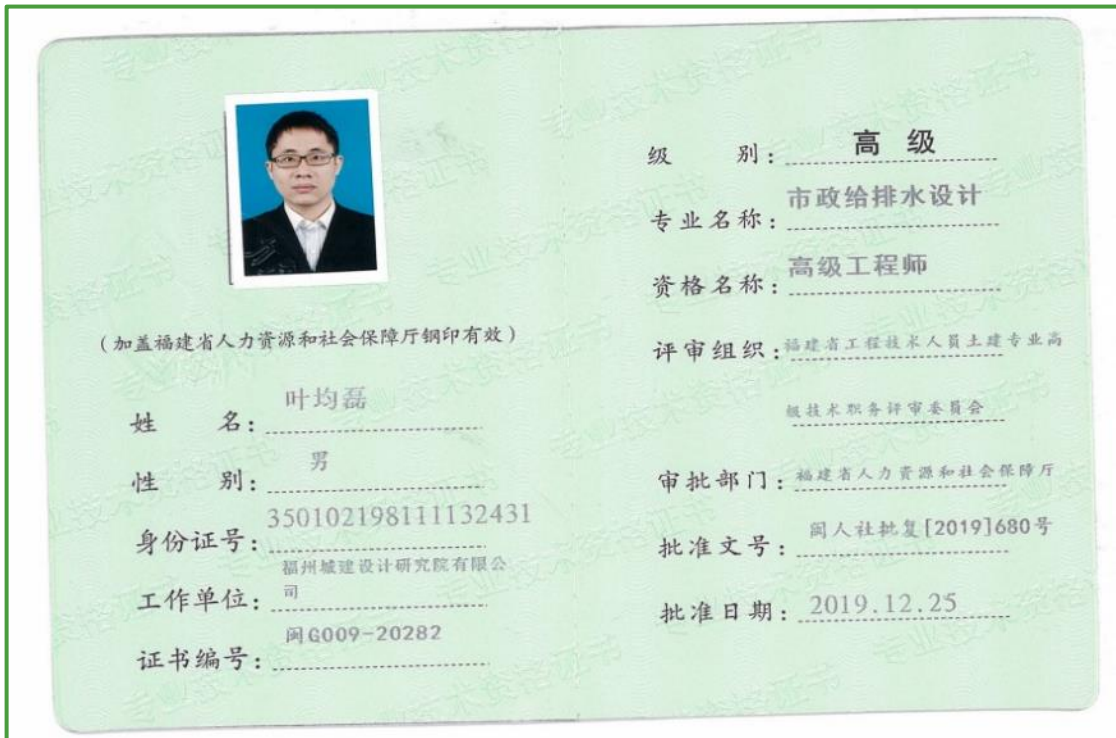 （加盖福建省人力资源和社会保障厅钢印有效）
姓 名：叶均磊
性 别：男
身份证号：350102198111132431
工作单位：福州城建设计研究院有限公
司
证书编号：闽G009-20282
级 别：高 级
专业名称：市政给排水设计
资格名称：高级工程师
评审组织：福建省工程技术人员土建专业高
级技术职务评审委员会
审批部门：福建省人力资源和社会保障厅
批准文号：闽人社批复[2019]680号
批准日期：2019.12.25
专业技术资格证书